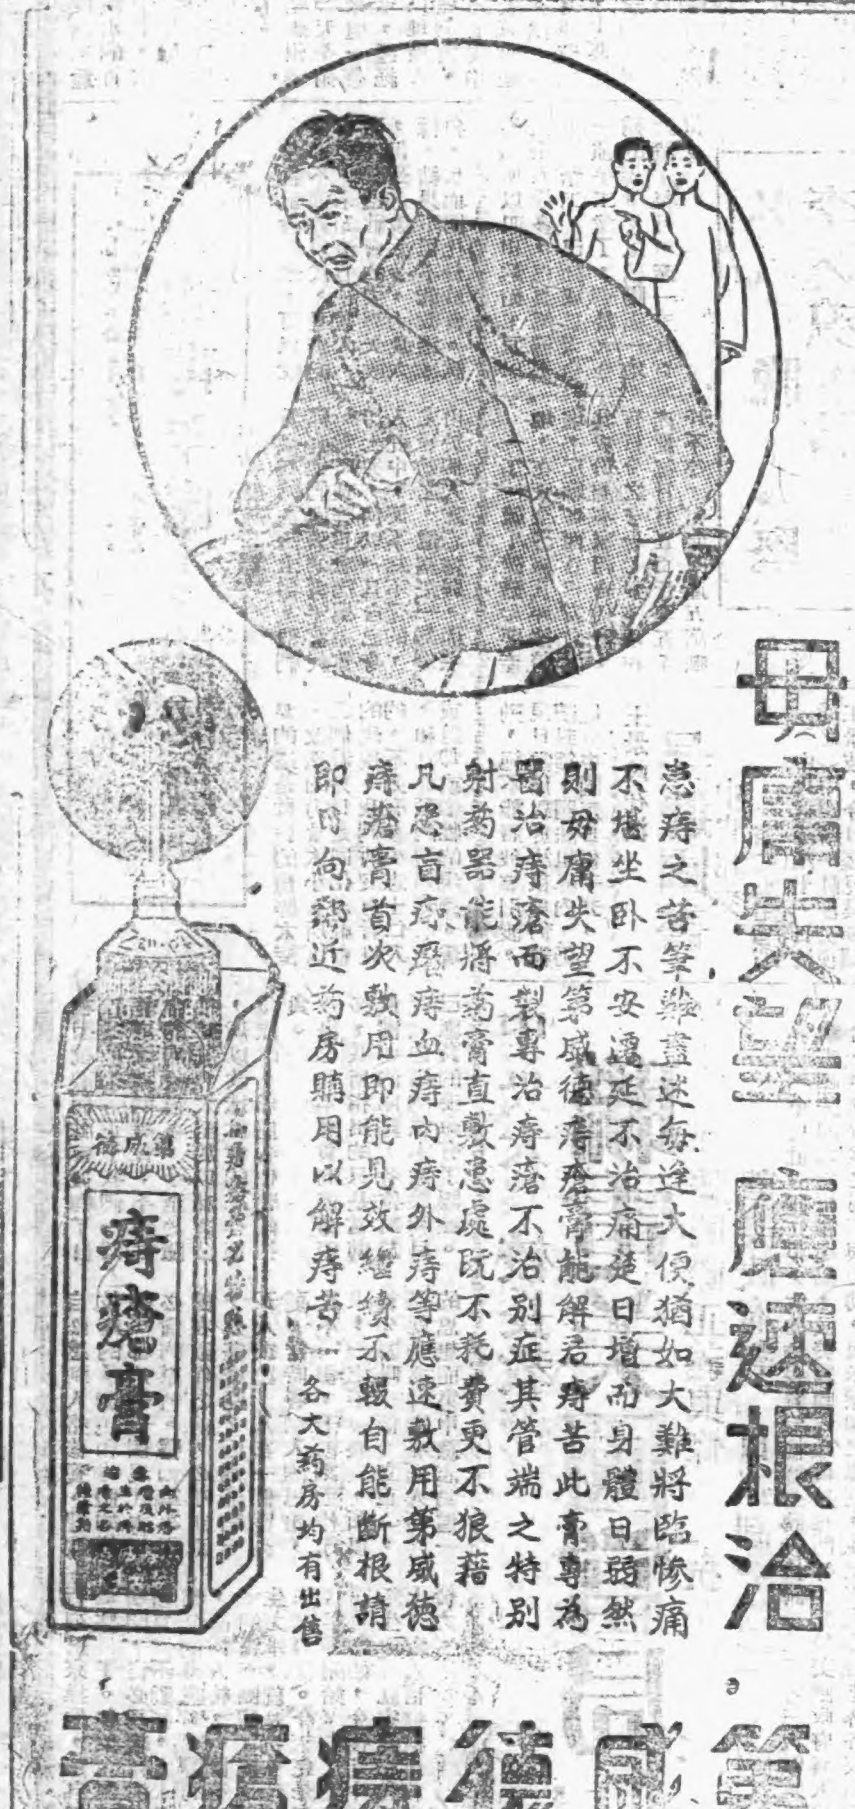 毋庸失望 應速根治
患痔之苦筆難盡述每逢大便猶如大難將臨慘痛
不堪坐臥不安遷延不治痛楚日增而身體日弱然
則毋庸失望第威德痔瘡膏能解君痔苦此膏專為
醫治痔瘡而製專治痔瘡不治別症其管端之特別
射药器能將药膏直敷患處既不耗費更不狼藉
凡患盲痔瘺痔血痔內痔外痔等應速敷用第威德
痔瘡膏首次敷用即能見效繼續不輟自能斷根請
即日向鄰近药房購用以解痔苦
各大药房均有出售
第威德
痔瘡膏
第威德痔瘡膏